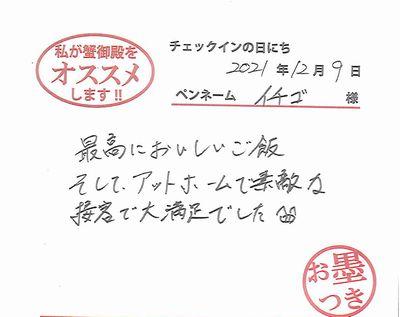 私が蟹御殿を
オススメ
します!!
チェックインの日にち
2021年12月9日
ペンネーム イチゴ 様
最高においしいご飯
そして、アットホームで素敵な
接客で大満足でした
お墨
つき